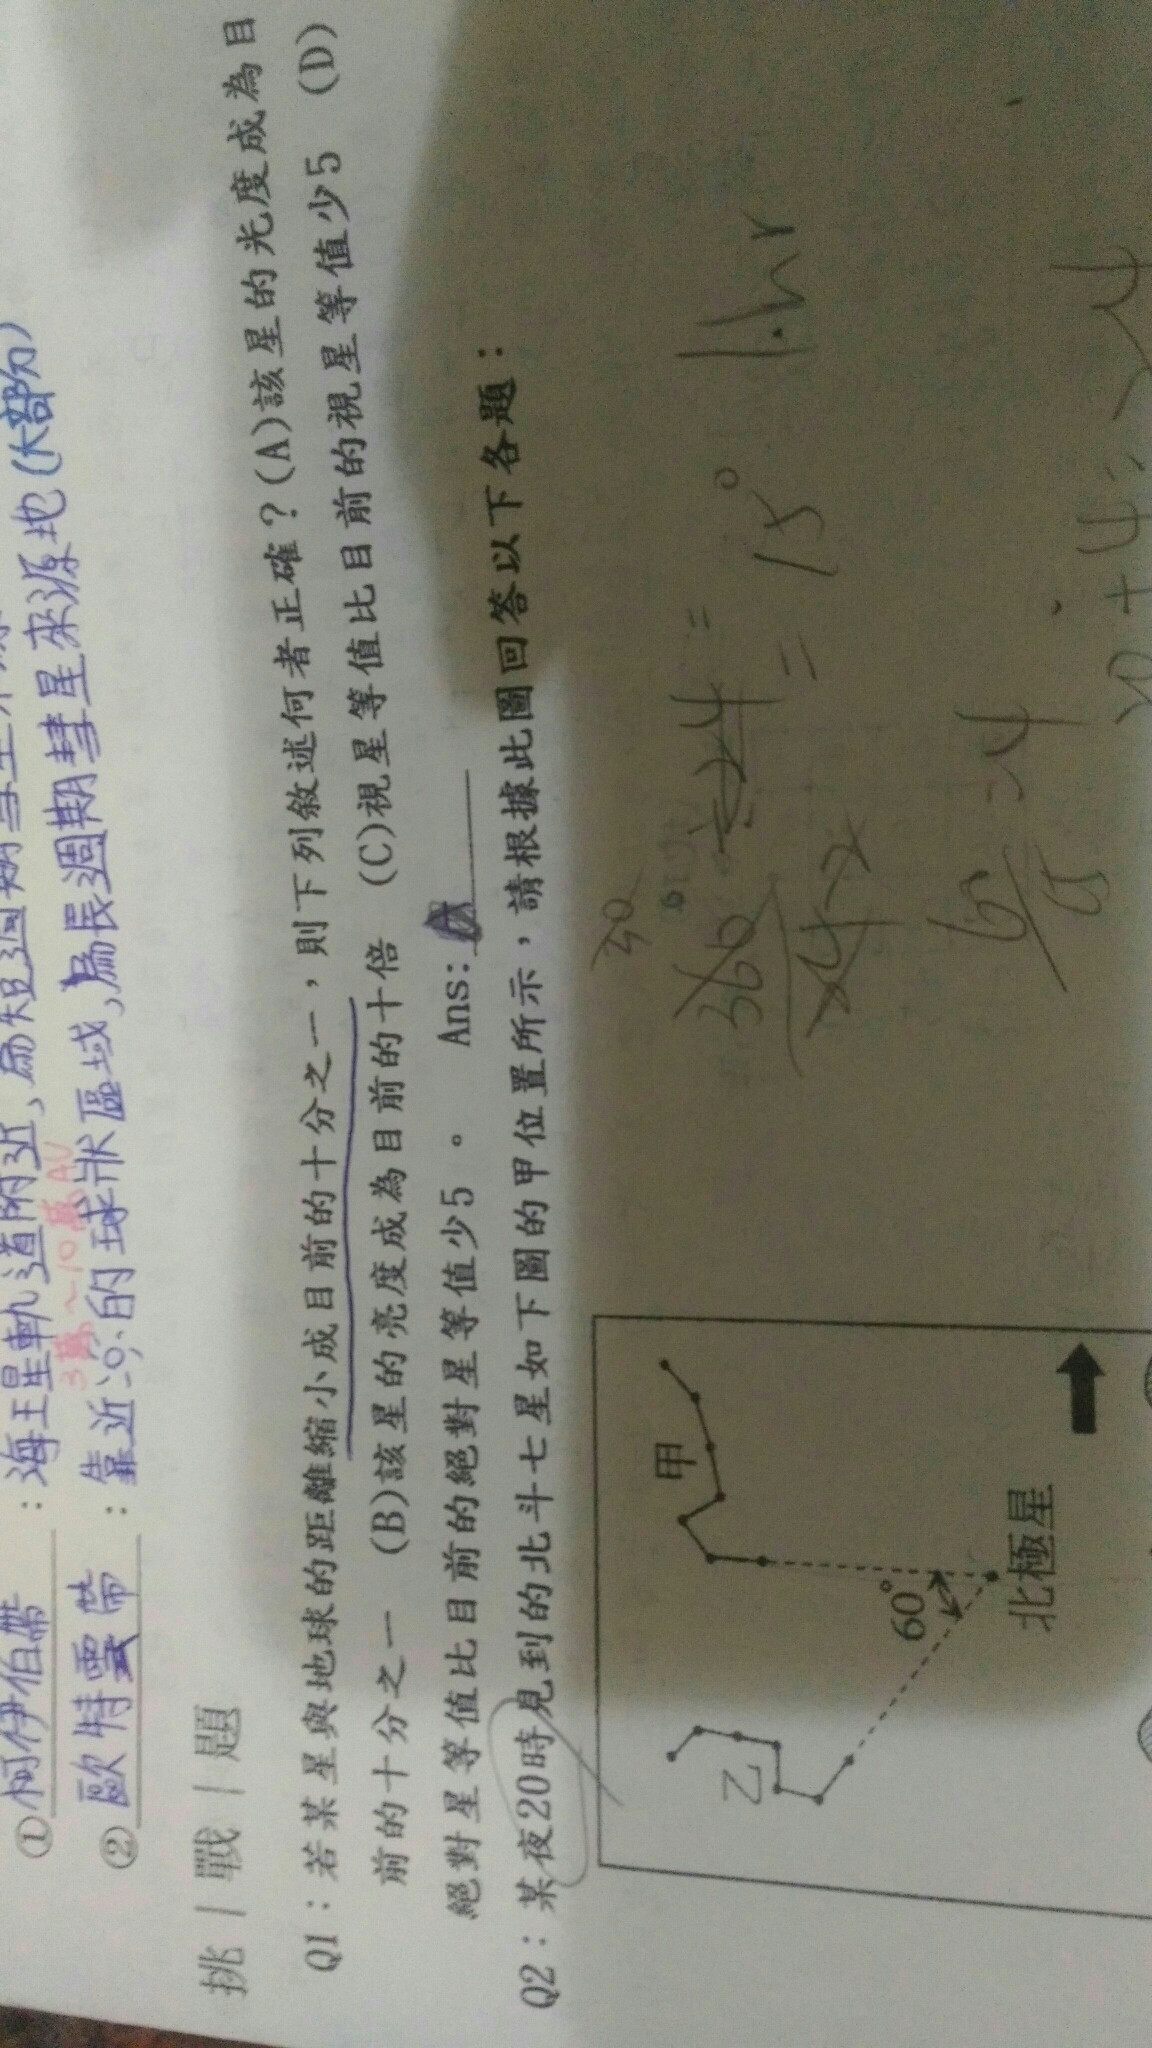 ①柯伊伯帶：海王星軌道附近，為短週期
3萬~10萬AU
②歐特雲帶：靠近的球狀區域，為長週期彗星來源地(大部份)
挑｜戰｜題
Q1：若某星與地球的距離縮小成目前的十分之一，則下列敘述何者正確？(A)該星的光度成為目
前的十分之一 (B)該星的亮度成為目前的十倍 (C)視星等值比目前的視星等值少5 (D)
絕對星等值比目前的絕對星等值少5。 Ans:
Q2：某夜20時見到的北斗七星如下圖的甲位置所示，請根據此圖回答以下各題：
甲
乙
60°
北極星
30
360
24
= 15°
1hr
60
15
=4
20+4=24